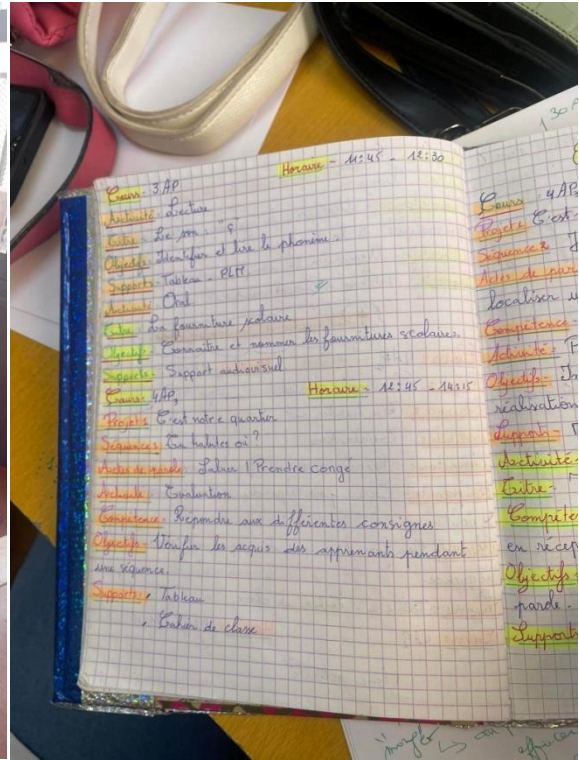 Horaire - 11:45 - 12:30
Cours - 3AP
Activité - Lecture
Titre - Le son : "
Objectifs - Identifier et lire le phonème.
Supports - Tableau - PLM
Activité - Oral
Titre - La fourniture scolaire
Objectif - Connaître et nommer les fournitures scolaires.
Supports - Support audiovisuel
Cours - 4AP,
Horaire - 12:45 - 14:15
Projet - C'est notre quartier
Séquences - Tu habites où ?
Actes de parole - Saluer / Prendre congé
Activité - Evaluation
Compétence - Répondre aux différentes consignes
Objectifs - Vérifier les acquis des apprenants pendant
une séquence.
Supports, Tableau
, Cahier de classe
130
Cours 4AP
Projet : C'est
Séquence 2
Actes de par
localiser u
Compétence
Activité -
Objectifs - Im
réalisation
Supports -
Activité -
Titre -
Compéte
en récep
Objectifs
parole.
Supports